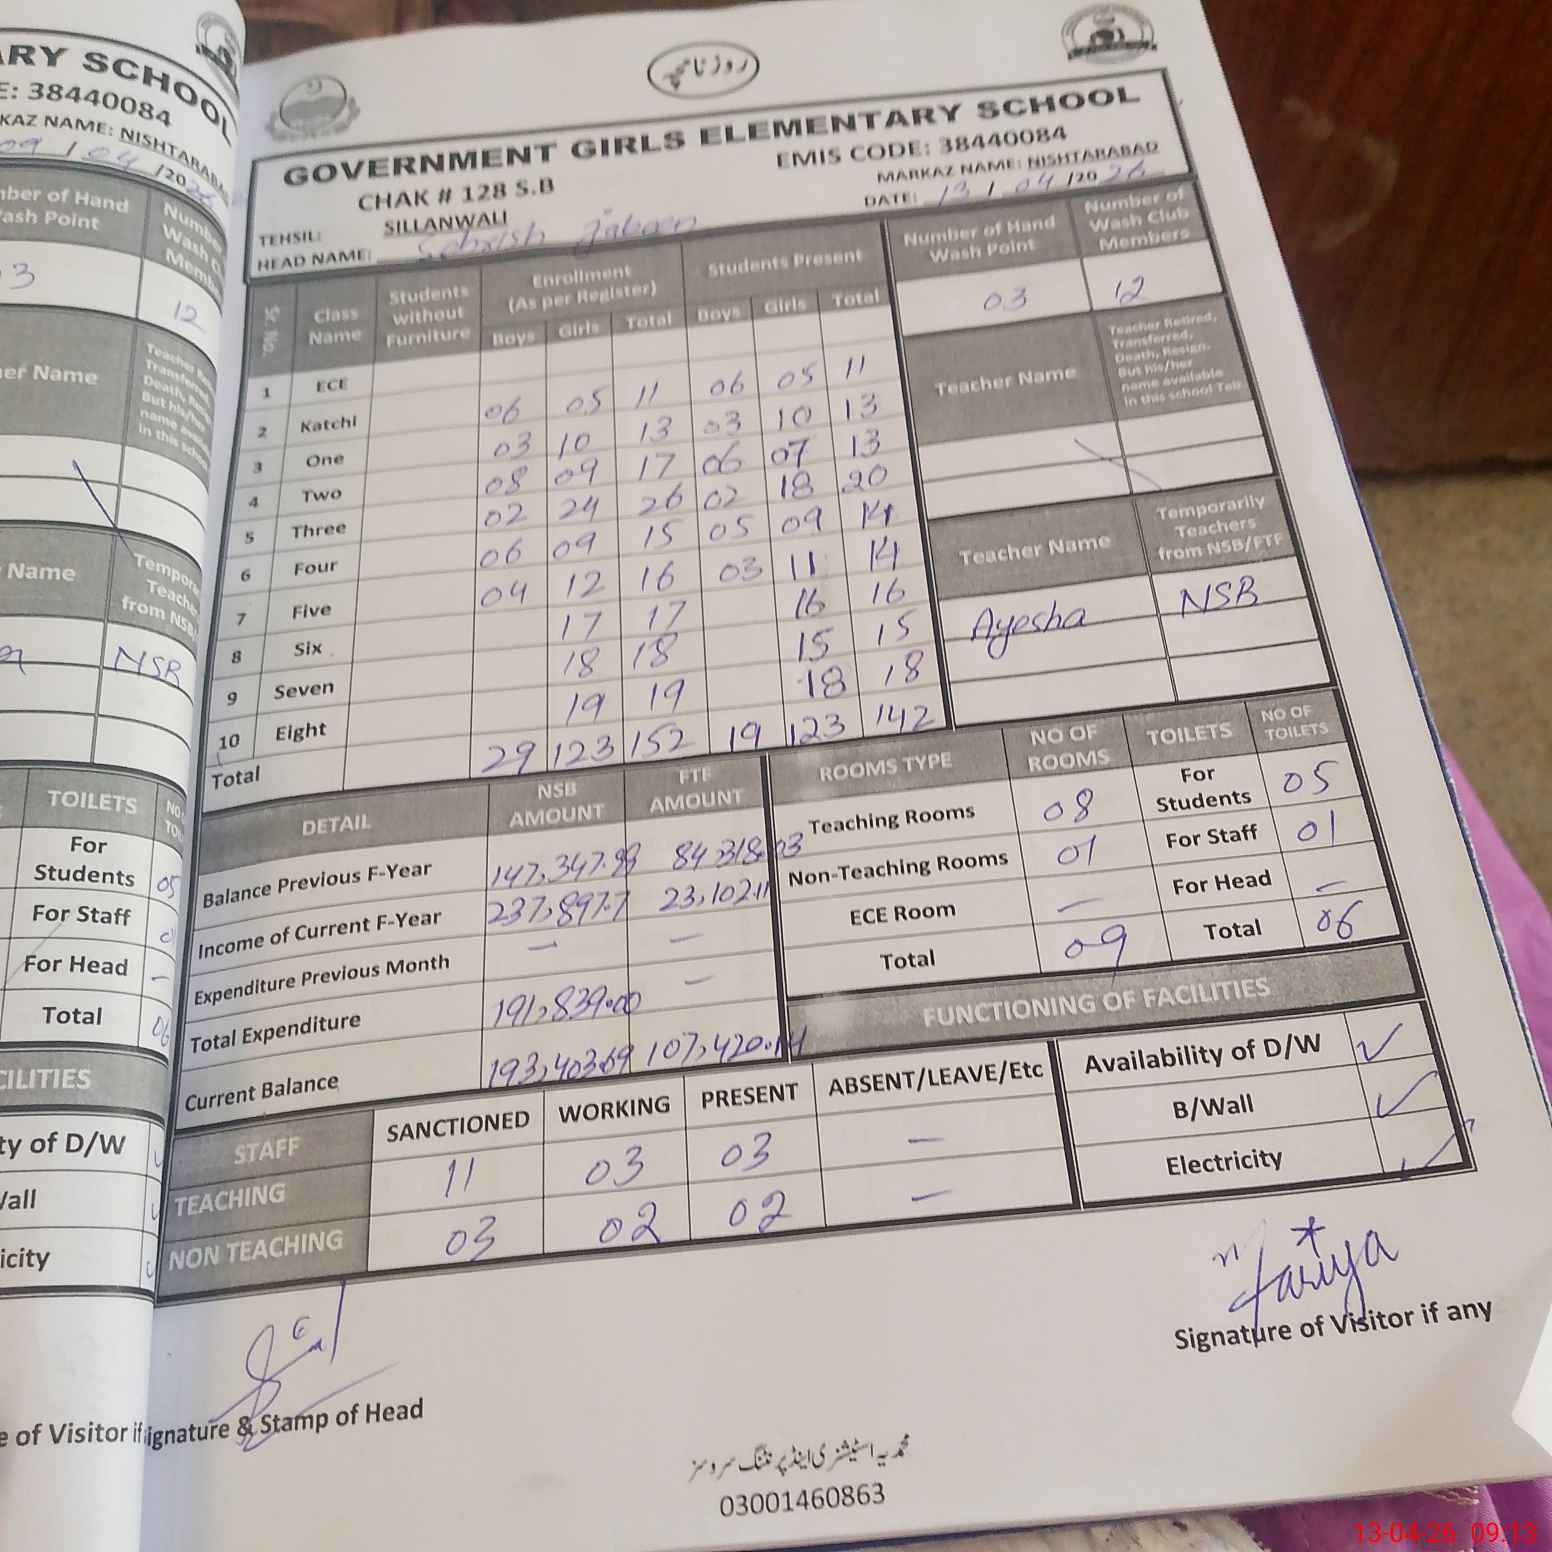 ARY SCHOOL
E: 38440084
KAZ NAME: NISHTARABAD
09 / 04 /20
Number of Hand Wash Point
Number Wash Club Members
03
12
Teacher Name
Name
Tempor Teache from NSB/
NSB
TOILETS
NO
For Students 05
For Staff
For Head –
Total 06
CILITIES
ty of D/W
Wall
icity
e of Visitor if
روزنامچہ
GOVERNMENT GIRLS ELEMENTARY SCHOOL
CHAK # 128 S.B
EMIS CODE: 38440084
TEHSIL: SILLANWALI
MARKAZ NAME: NISHTARABAD
HEAD NAME: Sehrish Jabeen
DATE: 13 / 04 /20 26
Sr No. Class Name Students Without Furniture Enrollment (As per Register) Students Present
Boys Girls Total Boys Girls Total
1 ECE
2 Katchi 06 05 11 06 05 11
3 One 03 10 13 03 10 13
4 Two 08 09 17 06 07 13
5 Three 02 24 26 02 18 20
6 Four 06 09 15 05 09 14
7 Five 04 12 16 03 11 14
8 Six 17 17 16 16
9 Seven 18 18 15 15
10 Eight 19 19 18 18
Total 29 123 152 19 123 142
Number of Hand Wash Point Number of Wash Club Members
03 12
Teacher Name Teacher Retired, Transferred, Death, Resign. But his/her name available in this school Tab
Teacher Name Temporarily Teachers from NSB/FTF
Ayesha NSB
DETAIL NSB AMOUNT FTF AMOUNT
Balance Previous F-Year 147,347.99 84318.03
Income of Current F-Year 237,897.7 23,102.11
Expenditure Previous Month – –
Total Expenditure 191,839.00 –
Current Balance 193,403.69 107,420.14
ROOMS TYPE NO OF ROOMS TOILETS NO OF TOILETS
Teaching Rooms 08 For Students 05
Non-Teaching Rooms 01 For Staff 01
ECE Room – For Head –
Total 09 Total 06
FUNCTIONING OF FACILITIES
Availability of D/W ✓
B/Wall ✓
Electricity ✓
STAFF SANCTIONED WORKING PRESENT ABSENT/LEAVE/Etc
TEACHING 11 03 03 –
NON TEACHING 03 02 02 –
Signature of Visitor if any
ignature & Stamp of Head
محمدیہ اسٹیشنری اینڈ پرنٹنگ سروسز
03001460863
13-04-26 09:13